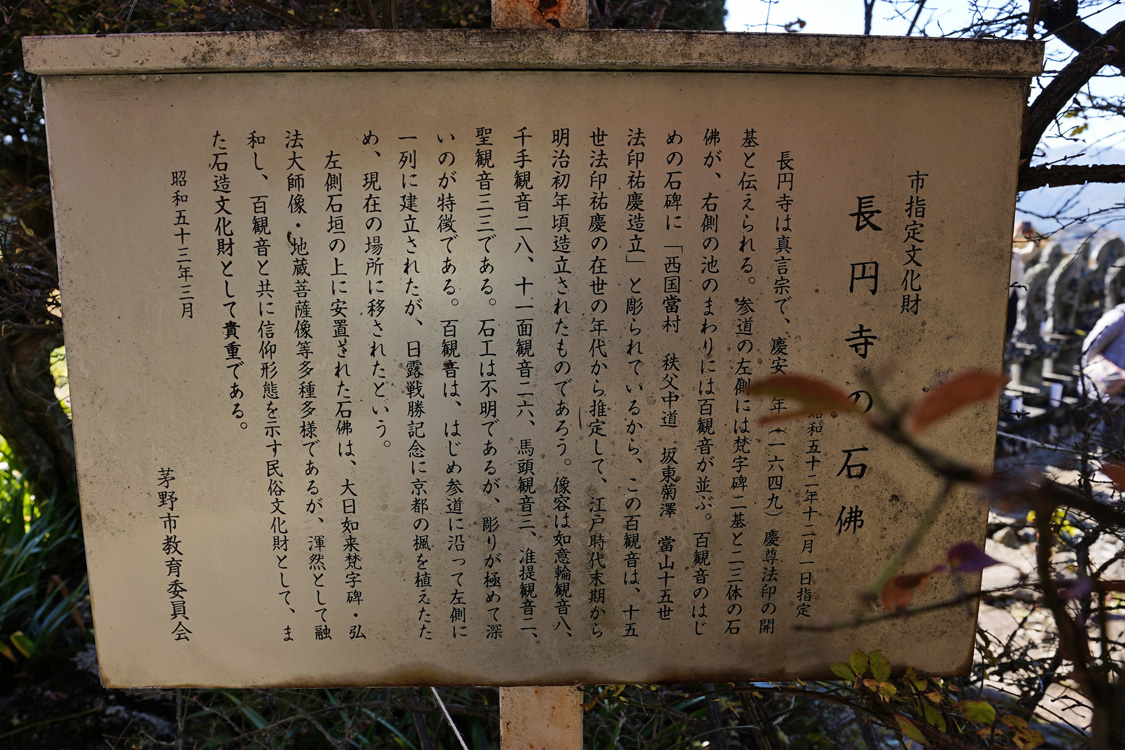 市指定文化財
長円寺の石佛
昭和五十二年十二月一日指定
長円寺は真言宗で、慶安 年(一六四九)慶尊法印の開
基と伝えられる。参道の左側には梵字碑二基と二三体の石
佛が、右側の池のまわりには百観音が並ぶ。百観音のはじ
めの石碑に「西国當村 秩父中道 坂東菊澤 當山十五世
法印祐慶造立」と彫られているから、この百観音は、十五
世法印祐慶の在世の年代から推定して、江戸時代末期から
明治初年頃造立されたものであろう。像容は如意輪観音八、
千手観音二八、十一面観音二六、馬頭観音三、准提観音二、
聖観音三三である。石工は不明であるが、彫りが極めて深
いのが特徴である。百観音は、はじめ参道に沿って左側に
一列に建立されたが、日露戦勝記念に京都の楓を植えたた
め、現在の場所に移されたという。
左側石垣の上に安置された石佛は、大日如来梵字碑・弘
法大師像・地蔵菩薩像等多種多様であるが、渾然として融
和し、百観音と共に信仰形態を示す民俗文化財として、ま
た石造文化財として貴重である。
昭和五十三年三月
茅野市教育委員会